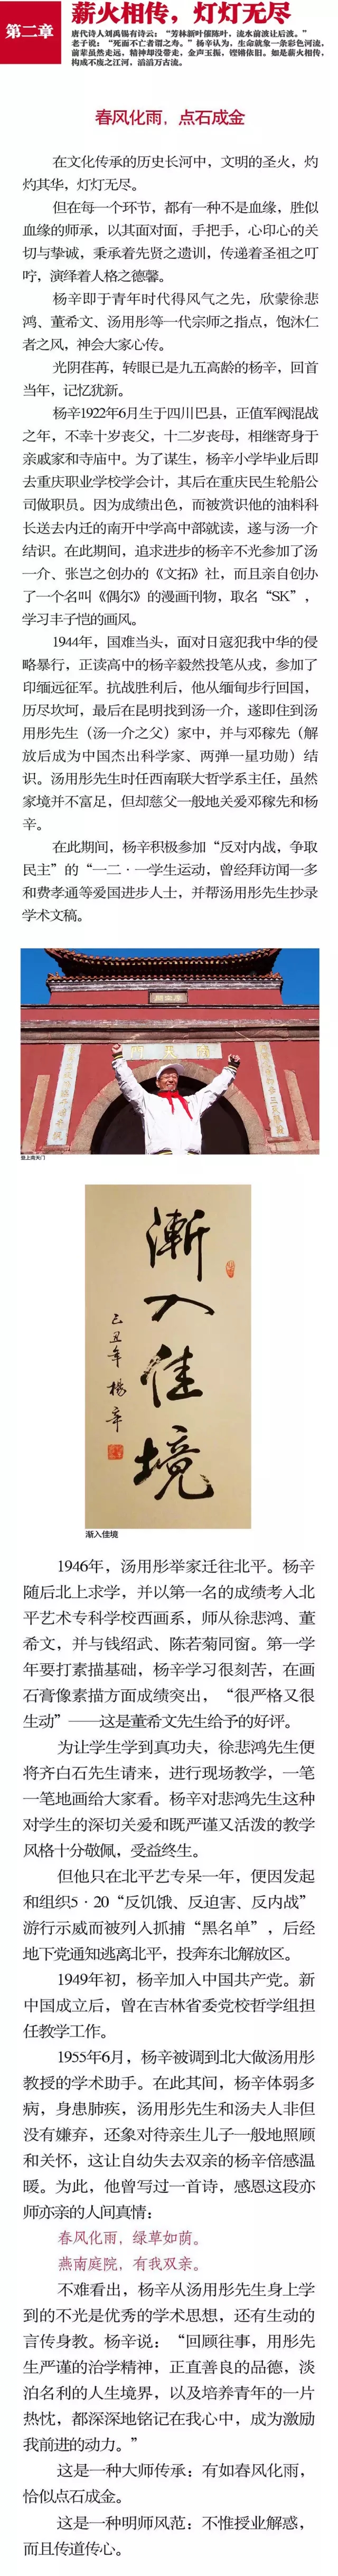 第二章
薪火相传，灯灯无尽
唐代诗人刘禹锡有诗云：“芳林新叶催陈叶，流水前波让后波。”
老子说：“死而不亡者谓之寿。”杨辛认为，生命就象一条彩色河流，
前辈虽然走远，精神却没带走，金声玉振，铿锵依旧。如是薪火相传，
构成不废之江河，滔滔万古流。
春风化雨，点石成金
在文化传承的历史长河中，文明的圣火，灼
灼其华，灯灯无尽。
但在每一个环节，都有一种不是血缘，胜似
血缘的师承，以其面对面，手把手，心印心的关
切与挚诚，秉承着先贤之遗训，传递着圣祖之叮
咛，演绎着人格之德馨。
杨辛即于青年时代得风气之先，欣蒙徐悲
鸿、董希文、汤用彤等一代宗师之指点，饱沐仁
者之风，神会大家心传。
光阴荏苒，转眼已是九五高龄的杨辛，回首
当年，记忆犹新。
杨辛1922年6月生于四川巴县，正值军阀混战
之年，不幸十岁丧父，十二岁丧母，相继寄身于
亲戚家和寺庙中。为了谋生，杨辛小学毕业后即
去重庆职业学校学会计，其后在重庆民生轮船公
司做职员。因为成绩出色，而被赏识他的油料科
长送去内迁的南开中学高中部就读，遂与汤一介
结识。在此期间，追求进步的杨辛不光参加了汤
一介、张岂之创办的《文拓》社，而且亲自创办
了一个名叫《偶尔》的漫画刊物，取名“SK”，
学习丰子恺的画风。
1944年，国难当头，面对日寇犯我中华的侵
略暴行，正读高中的杨辛毅然投笔从戎，参加了
印缅远征军。抗战胜利后，他从缅甸步行回国，
历尽坎坷，最后在昆明找到汤一介，遂即住到汤
用彤先生（汤一介之父）家中，并与邓稼先（解
放后成为中国杰出科学家、两弹一星功勋）结
识。汤用彤先生时任西南联大哲学系主任，虽然
家境并不富足，但却慈父一般地关爱邓稼先和杨
辛。
在此期间，杨辛积极参加“反对内战，争取
民主”的“一二·一学生运动，曾经拜访闻一多
和费孝通等爱国进步人士，并帮汤用彤先生抄录
学术文稿。
登上南天门
渐入佳境
己丑年 杨辛
渐入佳境
1946年，汤用彤举家迁往北平。杨辛
随后北上求学，并以第一名的成绩考入北
平艺术专科学校西画系，师从徐悲鸿、董
希文，并与钱绍武、陈若菊同窗。第一学
年要打素描基础，杨辛学习很刻苦，在画
石膏像素描方面成绩突出，“很严格又很
生动”——这是董希文先生给予的好评。
为让学生学到真功夫，徐悲鸿先生便
将齐白石先生请来，进行现场教学，一笔
一笔地画给大家看。杨辛对悲鸿先生这种
对学生的深切关爱和既严谨又活泼的教学
风格十分敬佩，受益终生。
但他只在北平艺专呆一年，便因发起
和组织5·20“反饥饿、反迫害、反内战”
游行示威而被列入抓捕“黑名单”，后经
地下党通知逃离北平，投奔东北解放区。
1949年初，杨辛加入中国共产党。新
中国成立后，曾在吉林省委党校哲学组担
任教学工作。
1955年6月，杨辛被调到北大做汤用彤
教授的学术助手。在此其间，杨辛体弱多
病，身患肺疾，汤用彤先生和汤夫人非但
没有嫌弃，还象对待亲生儿子一般地照顾
和关怀，这让自幼失去双亲的杨辛倍感温
暖。为此，他曾写过一首诗，感恩这段亦
师亦亲的人间真情：
春风化雨，绿草如荫。
燕南庭院，有我双亲。
不难看出，杨辛从汤用彤先生身上学
到的不光是优秀的学术思想，还有生动的
言传身教。杨辛说：“回顾往事，用彤先
生严谨的治学精神，正直善良的品德，淡
泊名利的人生境界，以及培养青年的一片
热忱，都深深地铭记在我心中，成为激励
我前进的动力。”
这是一种大师传承：有如春风化雨，
恰似点石成金。
这是一种明师风范：不惟授业解惑，
而且传道传心。